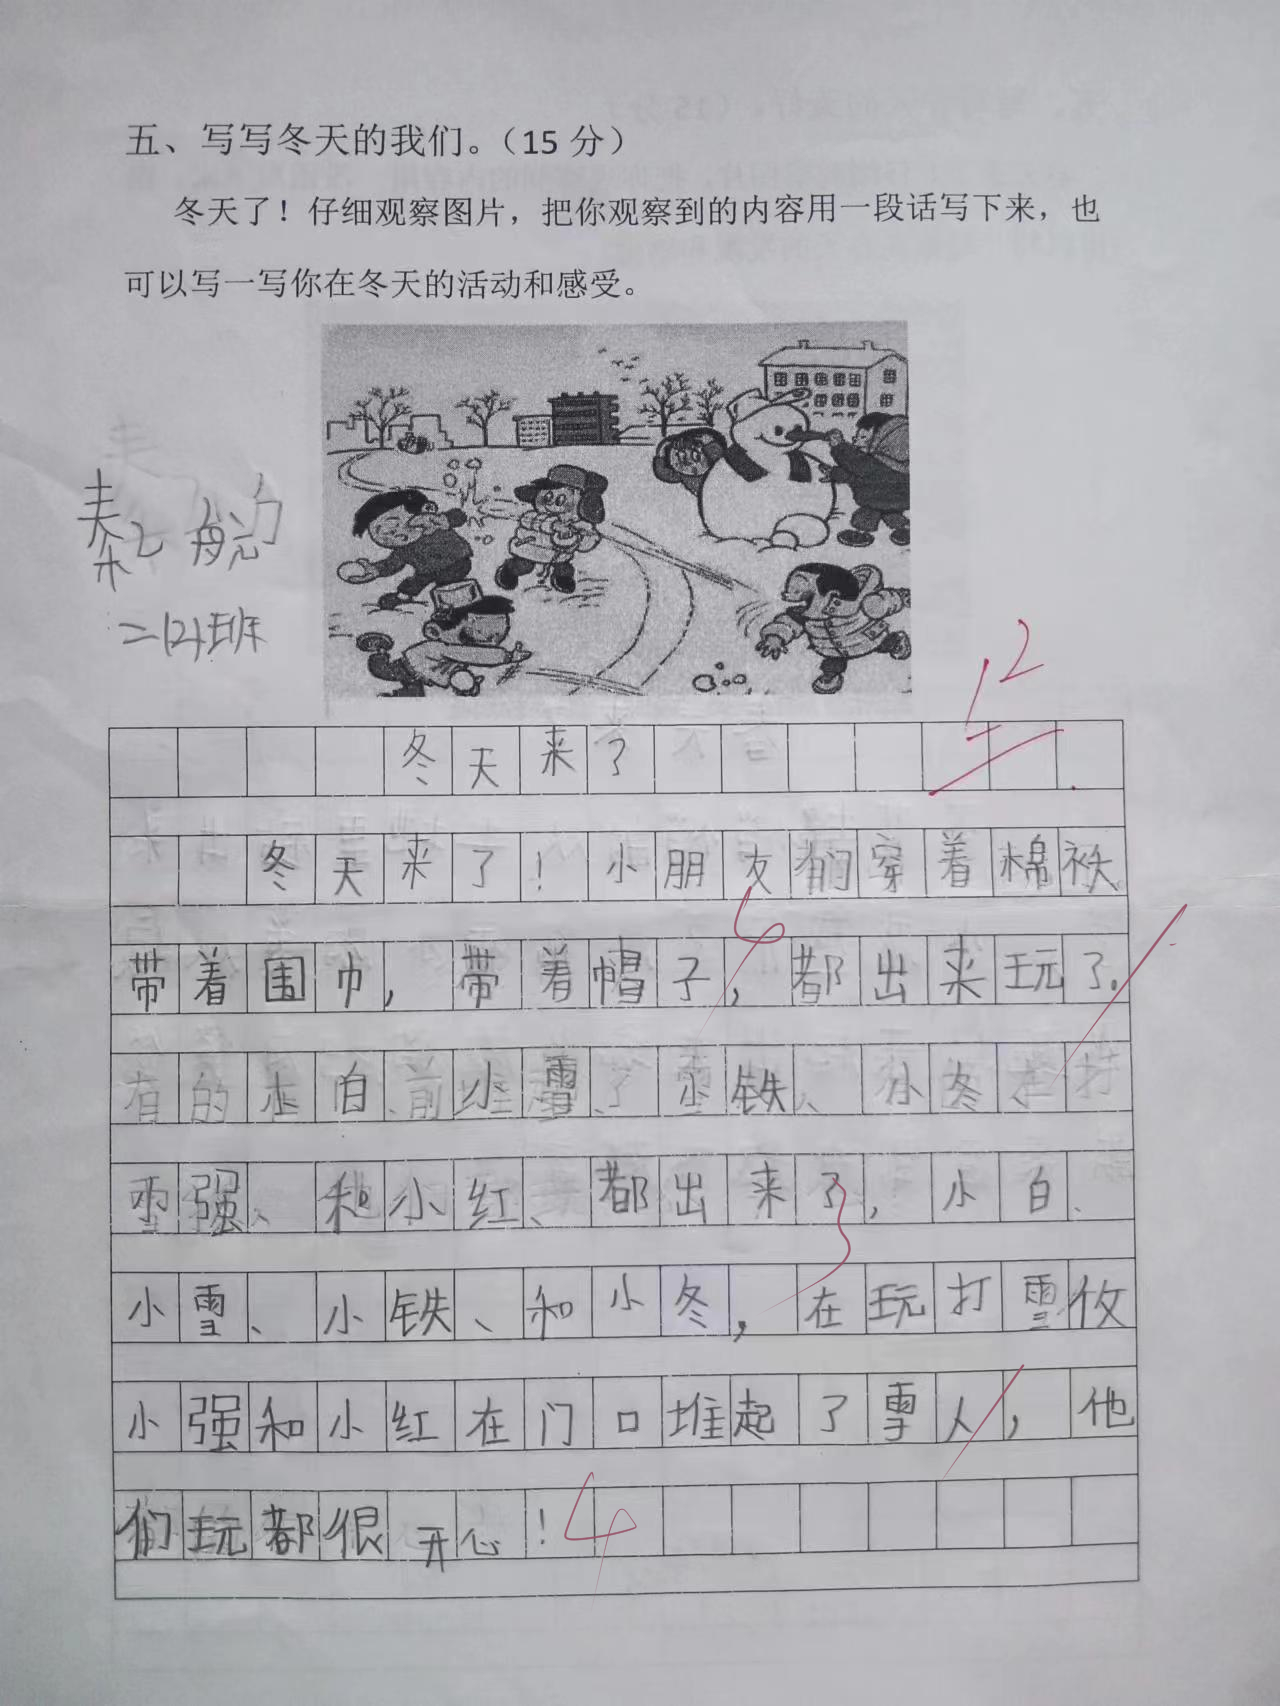 五、写写冬天的我们。（15 分）
冬天了！仔细观察图片，把你观察到的内容用一段话写下来，也
可以写一写你在冬天的活动和感受。
航
二（2）班
12
冬天来了
冬天来了！小朋友们穿着棉袄
带着围巾，带着帽子，都出来玩了。
4
有的小白、小雪、小铁、小冬、
雪强、和小红、都出来了，小白、
3
小雪、小铁、和小冬，在玩打雪仗
小强和小红在门口堆起了雪人，他
们玩都很开心！
4